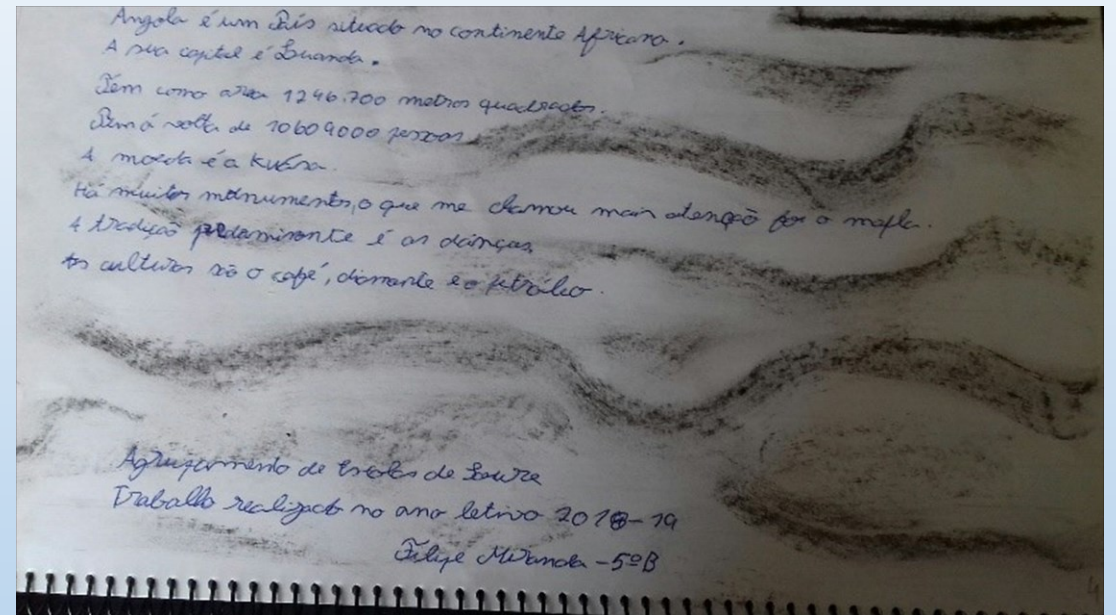 Angola é um País situado no continente Africano.
A sua capital é Luanda.
Tem como area 1246.700 metros quadrados.
Tem á volta de 10609000 pessoas.
A moeda é a Kuanza.
Há muitos monumentos, o que me chamou mais atenção foi o mapla.
A tradição predominante é as danças.
As culturas são o café, diamante e o petróleo.
Agrupamento de Escolas de Soure
Trabalho realizado no ano letivo 2018-19
Filipe Miranda - 5ºB